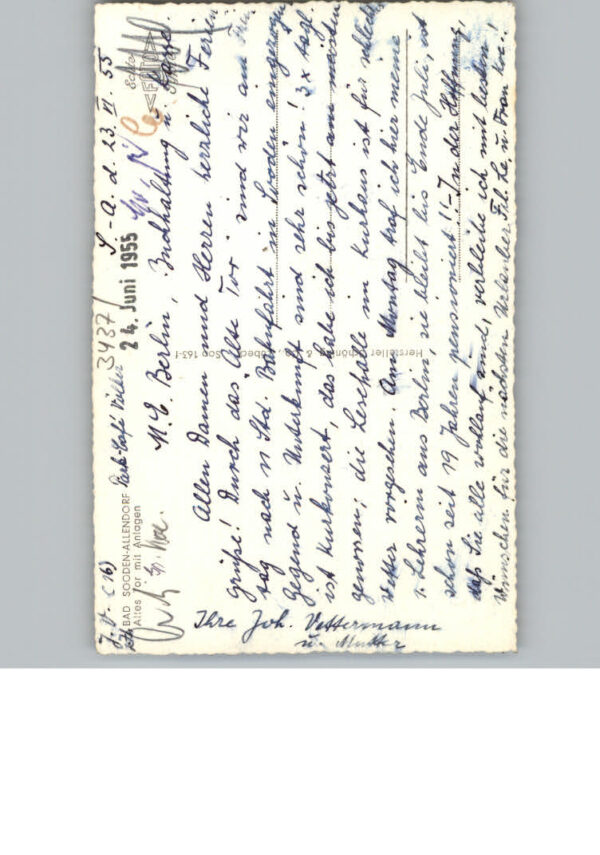 S.-A. d. 23. VI. 55
24. Juni 1955
3437/
Park-Café Völler
J. V. (16)
BAD SOODEN-ALLENDORF
Altes Tor mit Anlagen
N. E. Berlin, Buchhaltung u.
Allen Damen und Herren herrliche Ferien
grüße! Durch das "Alte Tor" sind wir am
tag nach 11 Std. Bahnfahrt in Sooden eingezogen
Gegend u. Unterkunft sind sehr schön! 3x tägl.
ist Kurkonzert, das habe ich bis jetzt am meisten
genossen; die Lesehalle im Kurhaus ist für schlecht
Wetter vorgesehen. Am Montag traf ich hier meine
Lehrerin aus Berlin, sie bleibt bis Ende Juli, ist
schon seit 19 Jahren pensioniert!! - In der Hoffnung,
daß Sie alle wohlauf sind, verbleibe ich mit besten
Wünschen für die nächsten Urlauber Frl. Le. u. Frau Koe.
Ihre Joh. Vettermann
u. Mutter
Hersteller Schöning & Co., Lübeck
Soo 163-f